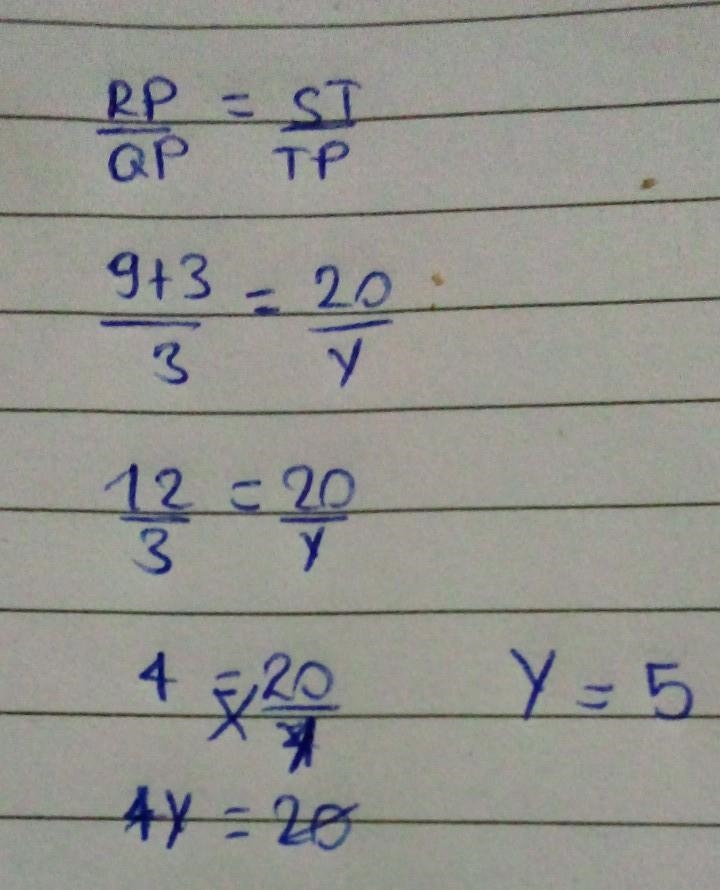 RP/QP = ST/TP
9+3/3 = 20/y
12/3 = 20/y
4 = 20/y
y = 5
4y = 20